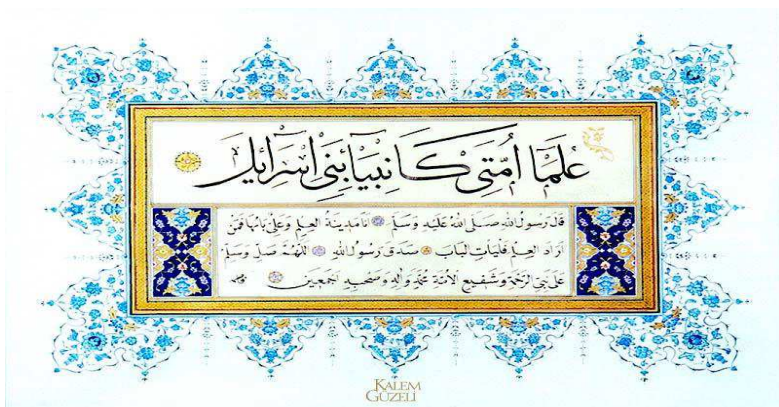 علماء امتي كانبياء بني اسرائيل
قال رسول الله صلى الله عليه وسلم انا مدينة العلم وعلي بابها فمن
اراد العلم فليات الباب صدق رسول الله اللهم صل وسلم
على نبي الرحمة وشفيع الامة محمد وآله وصحبه اجمعين
KALEM
GÜZELİ